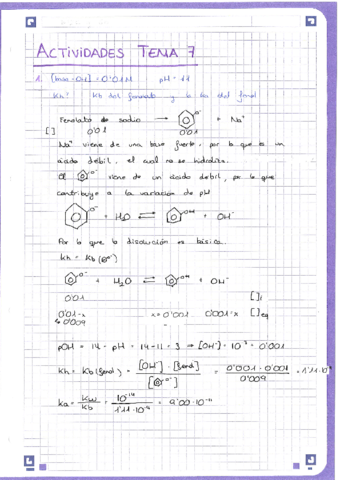 ACTIVIDADES TEMA 7
1. [base-OH] = 0'01M pH = 11
Kh? Kh del fenolato y la ka del fenol
Fenolato de sodio → O⁻ + Na⁺
[ ] 0'01 0'01
Na⁺ viene de una base fuerte, por lo que es un
ácido debil, el cual no se hidroliza.
El O⁻ viene de un ácido debil, por lo que
contribuye a la variación de pH
O⁻ + H₂O ⇌ OH + OH⁻
Por lo que la disolución es básica.
Kh = Kb (O⁻)
O⁻ + H₂O ⇌ OH + OH⁻
0'01 [ ]i
0'01-x x = 0'001 0'001-x [ ]eq
↳ 0'009
pOH = 14 - pH = 14-11 = 3 → [OH⁻] = 10⁻³ = 0'001
Kh = Kb (fenol) = [OH⁻] · [fenol] / [O⁻] = 0'001 · 0'001 / 0'009 = 1'11·10
Ka = Kw / Kb = 10⁻¹⁴ / 1'11·10⁻⁴ = 9'00·10⁻¹¹